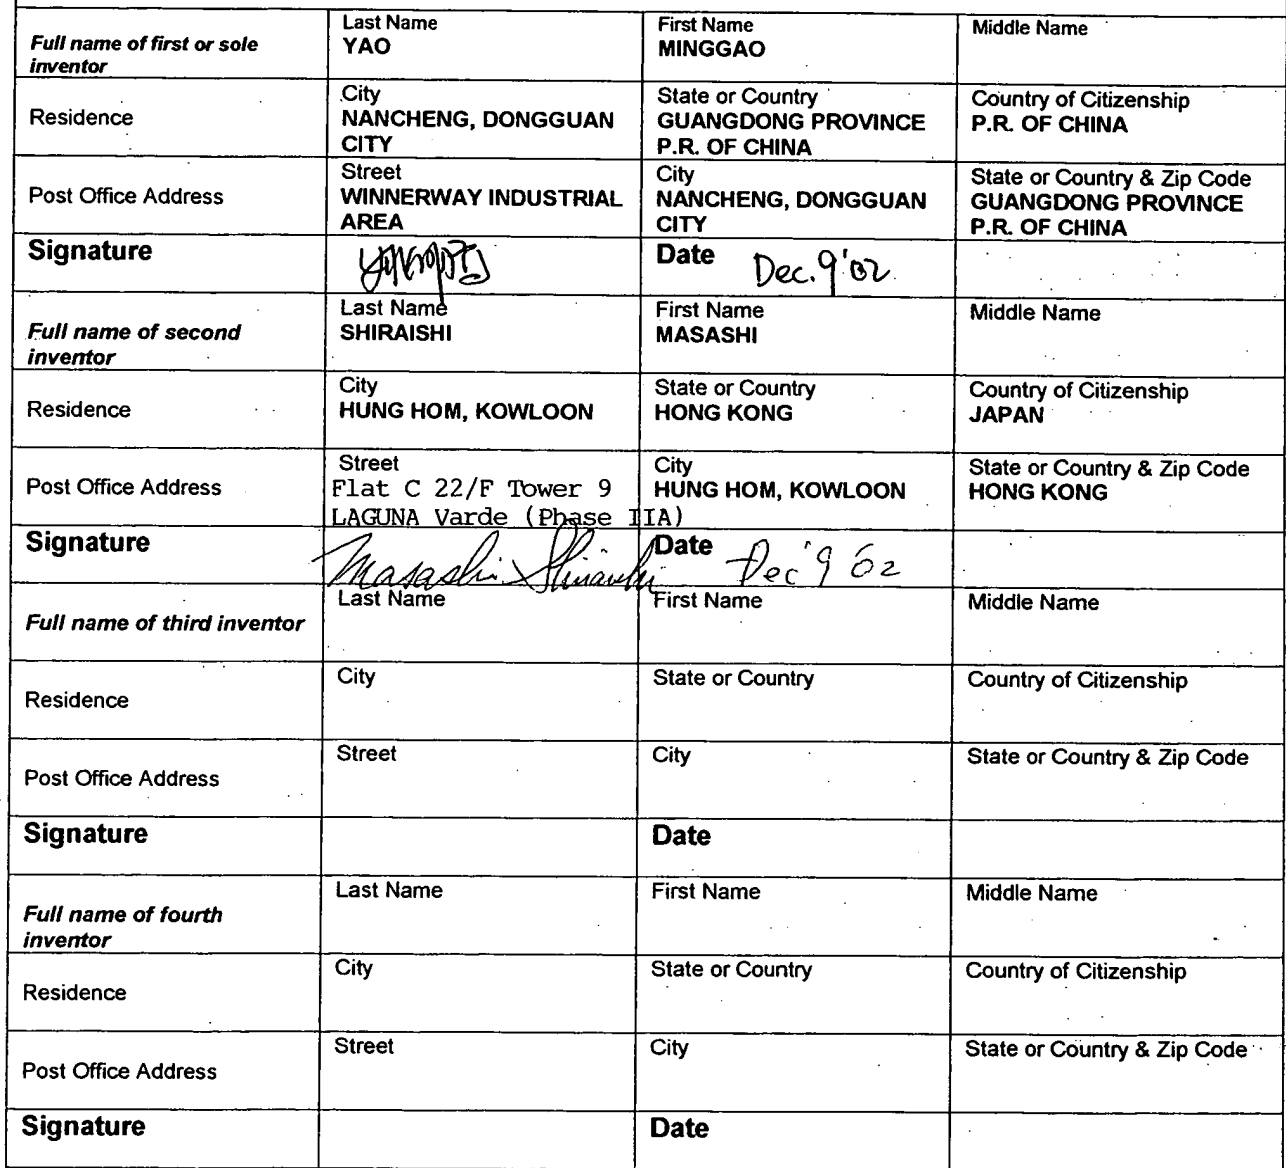 Full name of first or sole
inventor
Last Name
YAO
First Name
MINGGAO
Middle Name
Residence
City
NANCHENG, DONGGUAN
CITY
State or Country
GUANGDONG PROVINCE
P.R. OF CHINA
Country of Citizenship
P.R. OF CHINA
Post Office Address
Street
WINNERWAY INDUSTRIAL
AREA
City
NANCHENG, DONGGUAN
CITY
State or Country & Zip Code
GUANGDONG PROVINCE
P.R. OF CHINA
Signature
Date
Dec. 9 '02
Full name of second
inventor
Last Name
SHIRAISHI
First Name
MASASHI
Middle Name
Residence
City
HUNG HOM, KOWLOON
State or Country
HONG KONG
Country of Citizenship
JAPAN
Post Office Address
Street
Flat C 22/F Tower 9
LAGUNA Varde (Phase IIA)
City
HUNG HOM, KOWLOON
State or Country & Zip Code
HONG KONG
Signature
Masashi Shiraishi
Date
Dec ' 9 02
Full name of third inventor
Last Name
First Name
Middle Name
Residence
City
State or Country
Country of Citizenship
Post Office Address
Street
City
State or Country & Zip Code
Signature
Date
Full name of fourth
inventor
Last Name
First Name
Middle Name
Residence
City
State or Country
Country of Citizenship
Post Office Address
Street
City
State or Country & Zip Code
Signature
Date